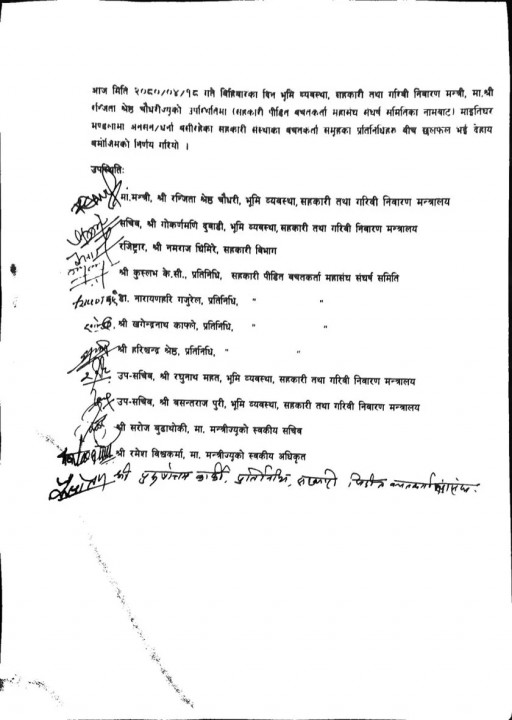 आज मिति २०८०/०४/१८ गते बिहिवारका दिन भूमि व्यवस्था, सहकारी तथा गरिवी निवारण मन्त्री, मा.श्री
रन्जिता श्रेष्ठ चौधरीज्यूको उपस्थितिमा (सहकारी पीडित बचतकर्ता महासंघ संघर्ष समितिका नामबाट) माइतिघर
मण्डलामा अनसन/धर्ना बसीरहेका सहकारी संस्थाका बचतकर्ता समुहका प्रतिनिधिहरु बीच छलफल भई देहाय
बमोजिमको निर्णय गरियो ।
उपस्थितिः
मा.मन्त्री, श्री रन्जिता श्रेष्ठ चौधरी, भूमि व्यवस्था, सहकारी तथा गरिवी निवारण मन्त्रालय
सचिव, श्री गोकर्णमणि दुवाडी, भूमि व्यवस्था, सहकारी तथा गरिवी निवारण मन्त्रालय
रजिष्ट्रार, श्री नमराज घिमिरे, सहकारी विभाग
श्री कुस्लभ के.सी., प्रतिनिधि, सहकारी पीडित बचतकर्ता महासंघ संघर्ष समिति
डा. नारायणहरि गजुरेल, प्रतिनिधि, " "
श्री खगेन्द्रनाथ काफ्ले, प्रतिनिधि, " "
श्री हरिश्चन्द्र श्रेष्ठ, प्रतिनिधि, " "
उप-सचिव, श्री रघुनाथ महत, भूमि व्यवस्था, सहकारी तथा गरिवी निवारण मन्त्रालय
उप-सचिव, श्री बसन्तराज पुरी, भूमि व्यवस्था, सहकारी तथा गरिवी निवारण मन्त्रालय
श्री सरोज बुढाथोकी, मा. मन्त्रीज्यूको स्वकीय सचिव
श्री रमेश विश्वकर्मा, मा. मन्त्रीज्यूको स्वकीय अधिकृत
श्री कार्की, प्रतिनिधि, सहकारी पिडित बचतकर्ता